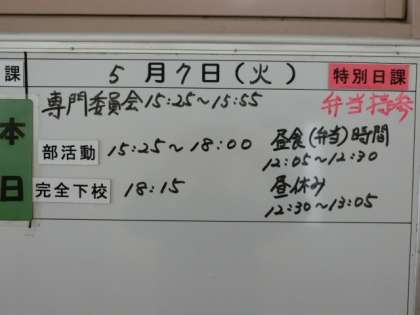 課 5月7日(火) 特別日課
専門委員会15:25~15:55 弁当持参
本日
部活動 15:25~18:00 昼食(弁当)時間
12:05~12:30
完全下校 18:15 昼休み
12:30~13:05